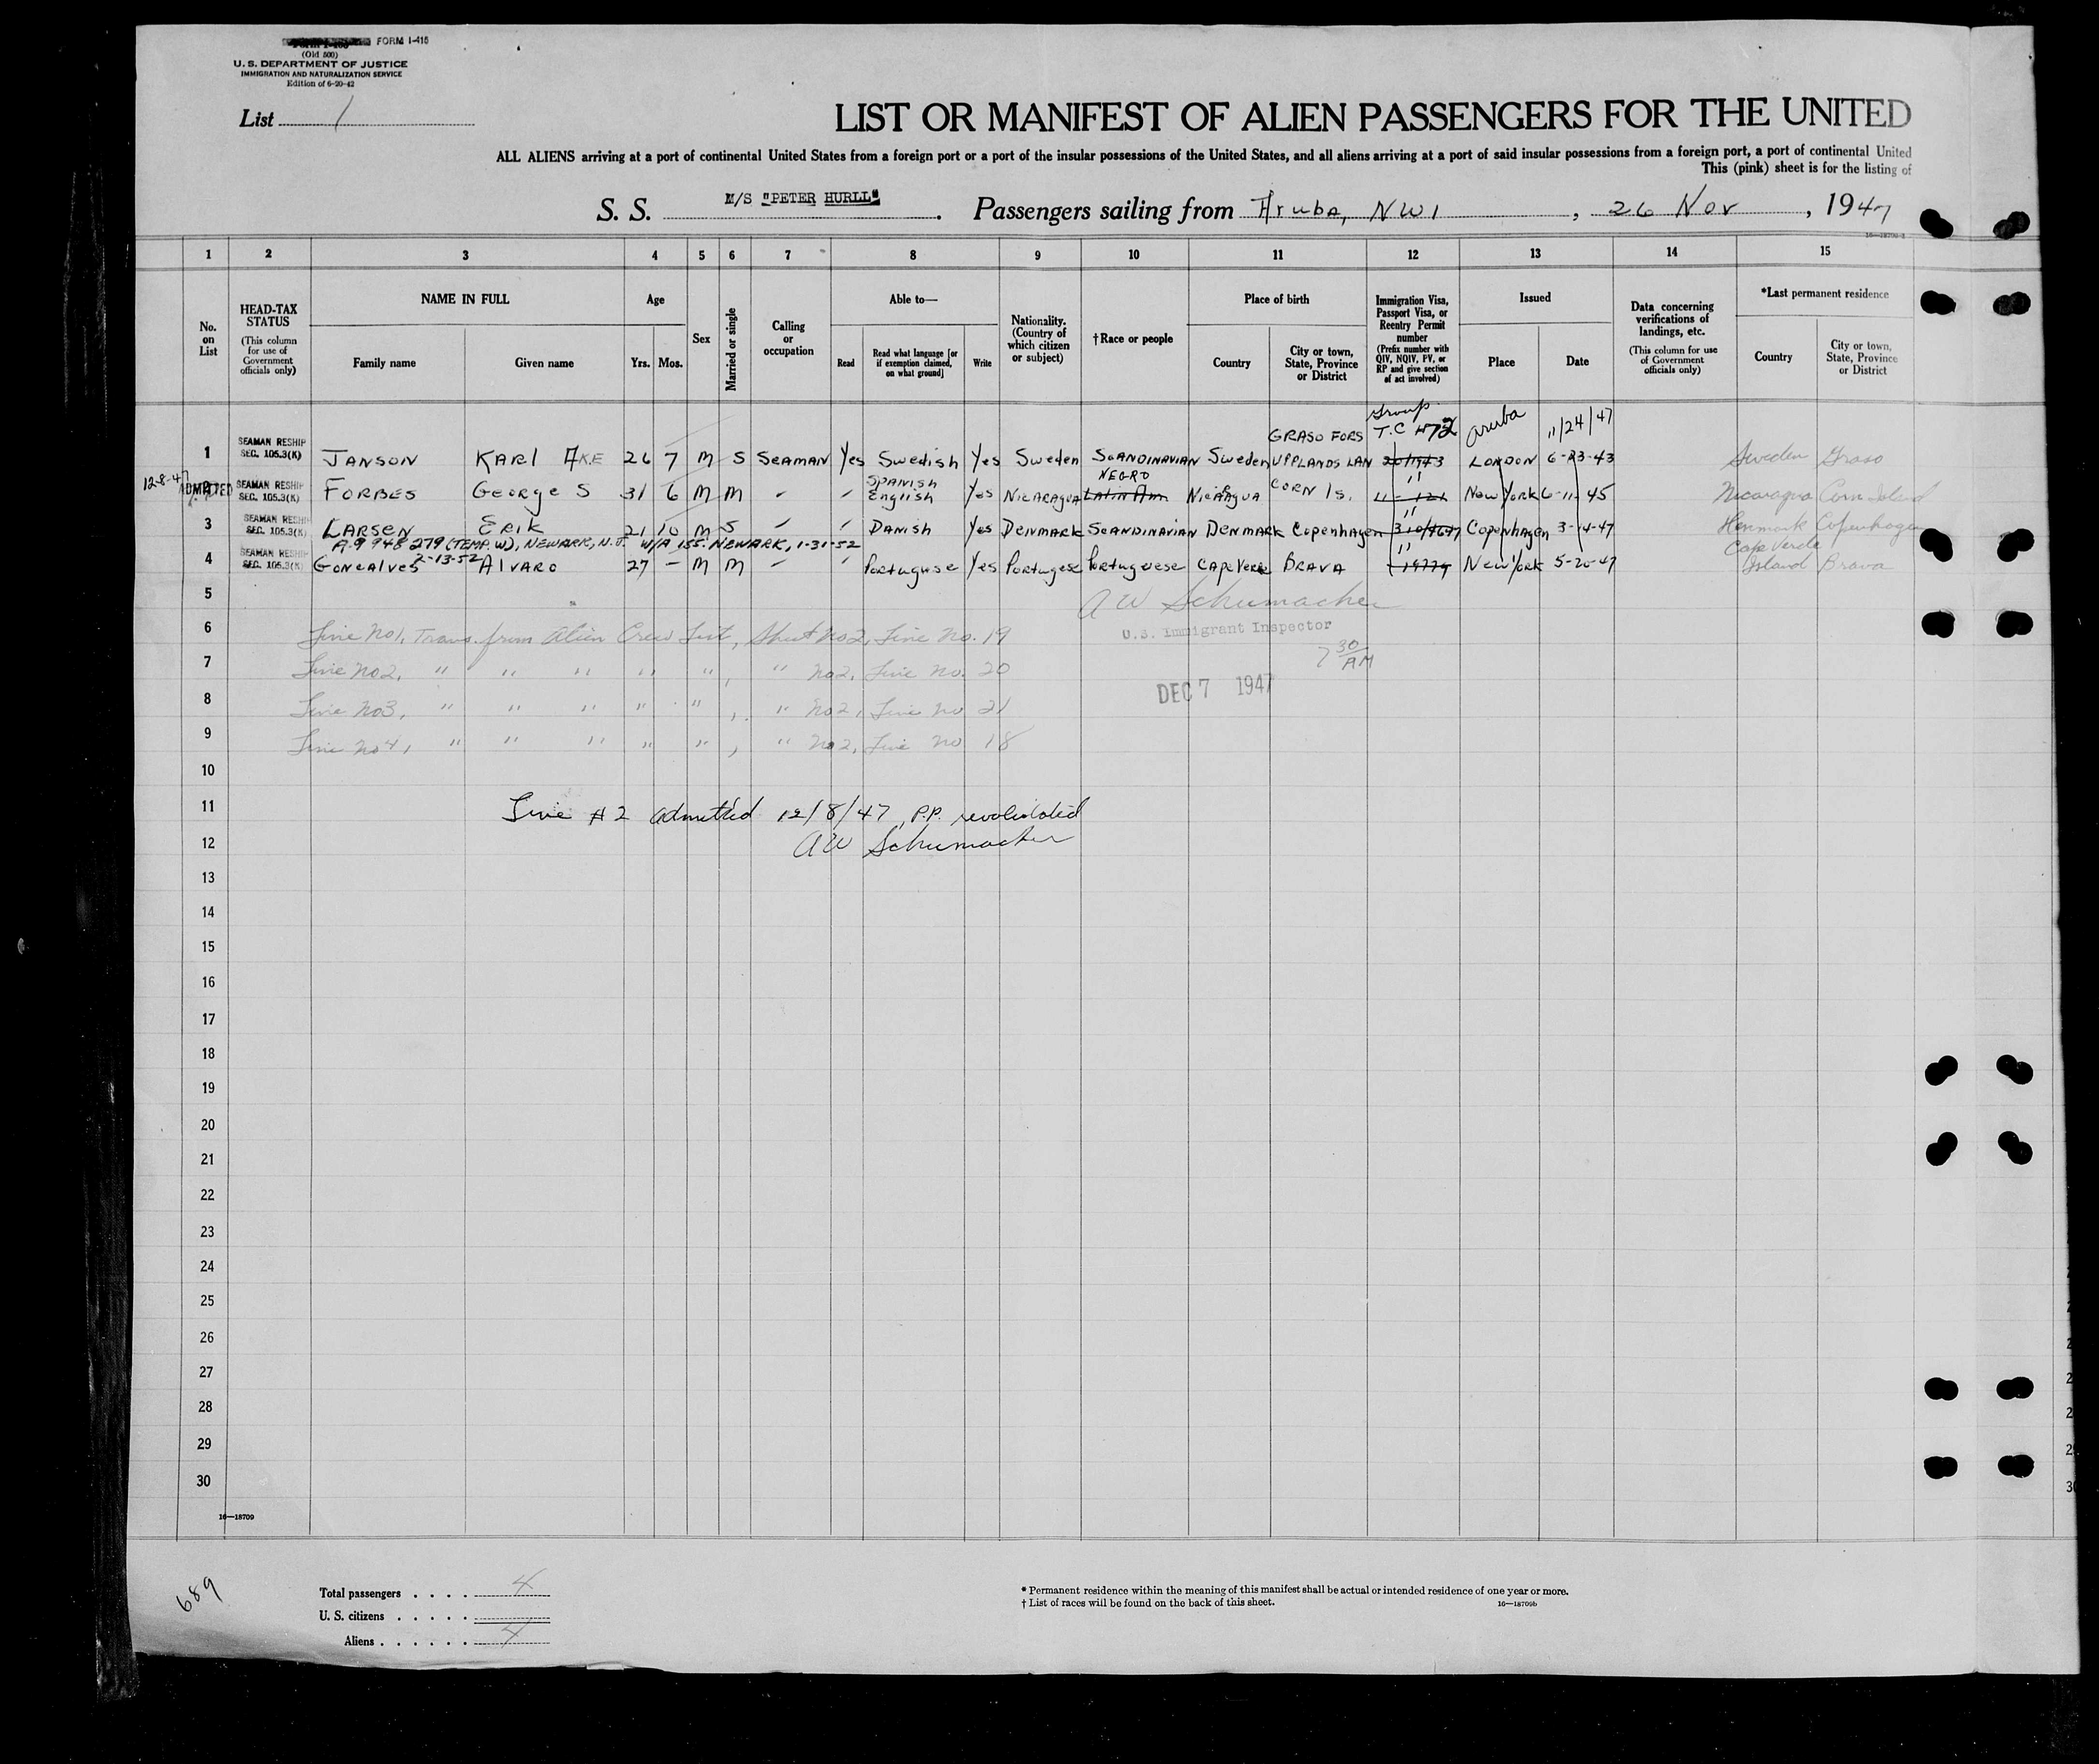 FORM I-415
(Old 500)
U. S. DEPARTMENT OF JUSTICE
IMMIGRATION AND NATURALIZATION SERVICE
Edition of 6-20-42
List 1
LIST OR MANIFEST OF ALIEN PASSENGERS FOR THE UNITED
ALL ALIENS arriving at a port of continental United States from a foreign port or a port of the insular possessions of the United States, and all aliens arriving at a port of said insular possessions from a foreign port, a port of continental United
This (pink) sheet is for the listing of
S. S. M/S "PETER HURLL". Passengers sailing from Aruba, NWI, 26 Nov, 1947
1 2 3 4 5 6 7 8 9 10 11 12 13 14 15
No. on List
HEAD-TAX STATUS (This column for use of Government officials only)
NAME IN FULL Family name Given name
Age Yrs. Mos.
Sex
Married or single
Calling or occupation
Able to— Read Read what language [or if exemption claimed, on what ground] Write
Nationality. (Country of which citizen or subject)
†Race or people
Place of birth Country City or town, State, Province or District
Immigration Visa, Passport Visa, or Reentry Permit number (Prefix number with QIV, NQIV, PV, or RP and give section of act involved)
Issued Place Date
Data concerning verifications of landings, etc. (This column for use of Government officials only)
*Last permanent residence Country City or town, State, Province or District
Group
GRASO FORS T.C #72 Aruba 11/24/47
1 SEAMAN RESHIP SEC. 105.3(K) JANSON KARl AKE 26 7 M S SEAMAN Yes Swedish Yes Sweden SCANDINAVIAN Sweden UPPLANDS LAN LONDON 6-23-43 Sweden Graso
12-8-47 ADMITTED
2 SEAMAN RESHIP SEC. 105.3(K) FORBES George S 31 6 M M " " SPANISH English Yes NICARAGUA NEGRO Latin Am NICARAGUA CORN Is. New York 6-11-45 Nicaragua Corn Island
3 SEAMAN RESHIP SEC. 105.3(K) LARSEN ERIK 21 10 M S " " DANISH Yes DENMARK SCANDINAVIAN DENMARK Copenhagen Copenhagen 3-14-47 Denmark Copenhagen
A-9 948 279 (TEMP. W), NEWARK, N.J. W/A 155. NEWARK, 1-31-52
2-13-52
4 SEAMAN RESHIP SEC. 105.3(K) GONCALVES Alvaro 27 - M M " " Portugese Yes Portugese Portuguese CAPE VERE BRAVA New York 5-20-47 Cape Verde Island Brava
5
A W Schumacher
U.S. Immigrant Inspector
6 Line No1, Trans. from Alien Crew List, Sheet No2, Line No. 19
7 30 AM
7 Line No2, " " " " ", " No2, Line No. 20
DEC 7 1947
8 Line No3, " " " " ", " No2, Line No 21
9 Line No4, " " " " ", " No2, Line No 18
10
11 Line #2 admitted 12/8/47, P.P. revalidated
12 AW Schumacher
13
14
15
16
17
18
19
20
21
22
23
24
25
26
27
28
29
30
16—18709
689
Total passengers . . . . 4
U. S. citizens . . . . .
Aliens . . . . . . 4
* Permanent residence within the meaning of this manifest shall be actual or intended residence of one year or more.
† List of races will be found on the back of this sheet.
16—18709b